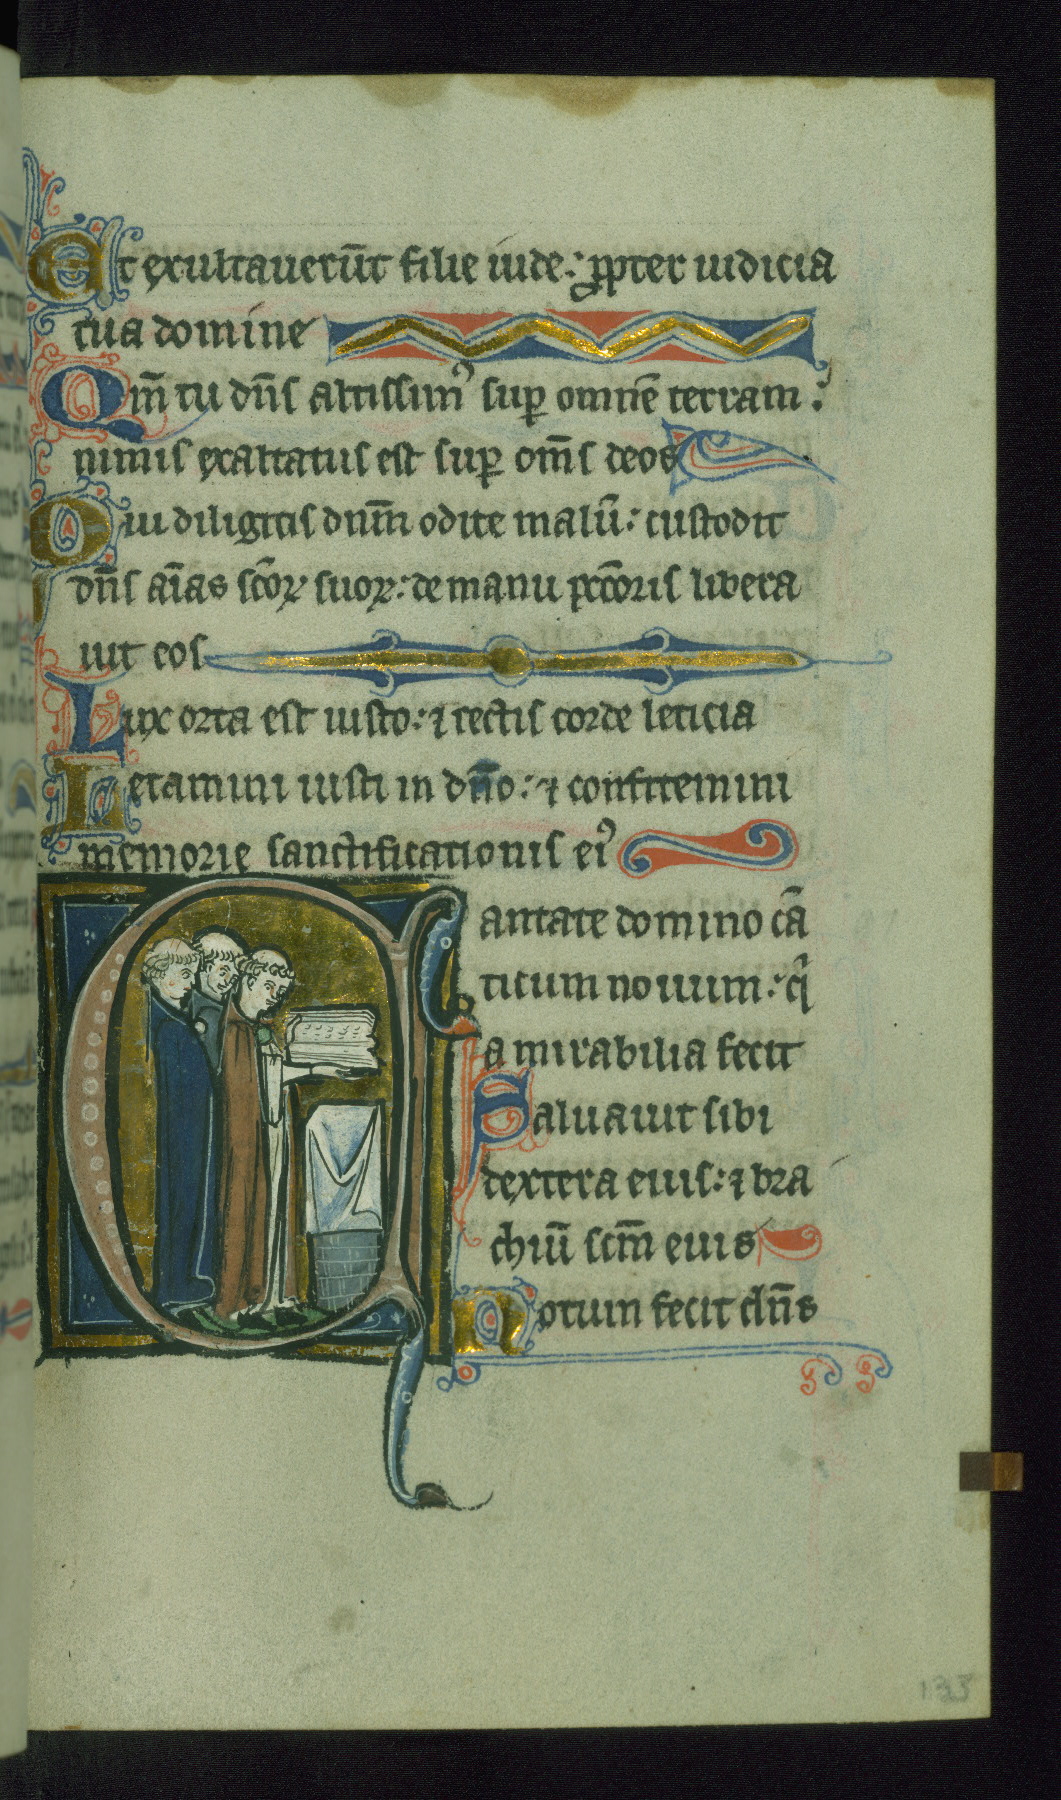 Et exultauerūt filie iude: ꝓpter iudicia
tua domine
Qm̄ tu dn̄s altissimꝰ suꝑ omnē terram:
nimis exaltatus est suꝑ om̄s deos
Qui diligitis dnm̄ odite malū: custodit
dn̄s aīas sc̄oꝝ suoꝝ: de manu pctōris libera
uit eos
Lux orta est iusto: ⁊ rectis corde leticia
Letamini iusti in dn̄o: ⁊ confitemini
memorie sanctificationis eiꝰ
Cantate domino cā
ticum nouum: qi
a mirabilia fecit
Saluauit sibi
dextera eius: ⁊ bra
chiū scm̄ euis
Notum fecit dn̄s
133